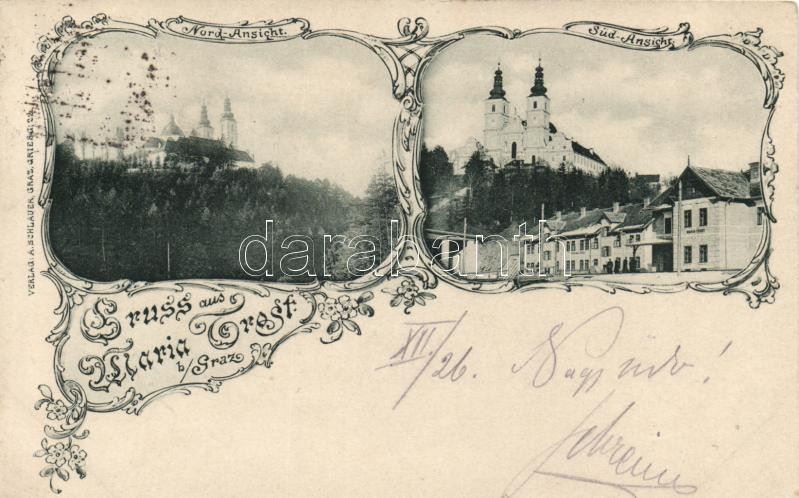 Nord-Ansicht.
Süd-Ansicht.
VERLAG: A. SCHLAUER, GRAZ, GRIESG.
Gruss aus
Maria Trost
b/Graz
darabanth
XII/26.